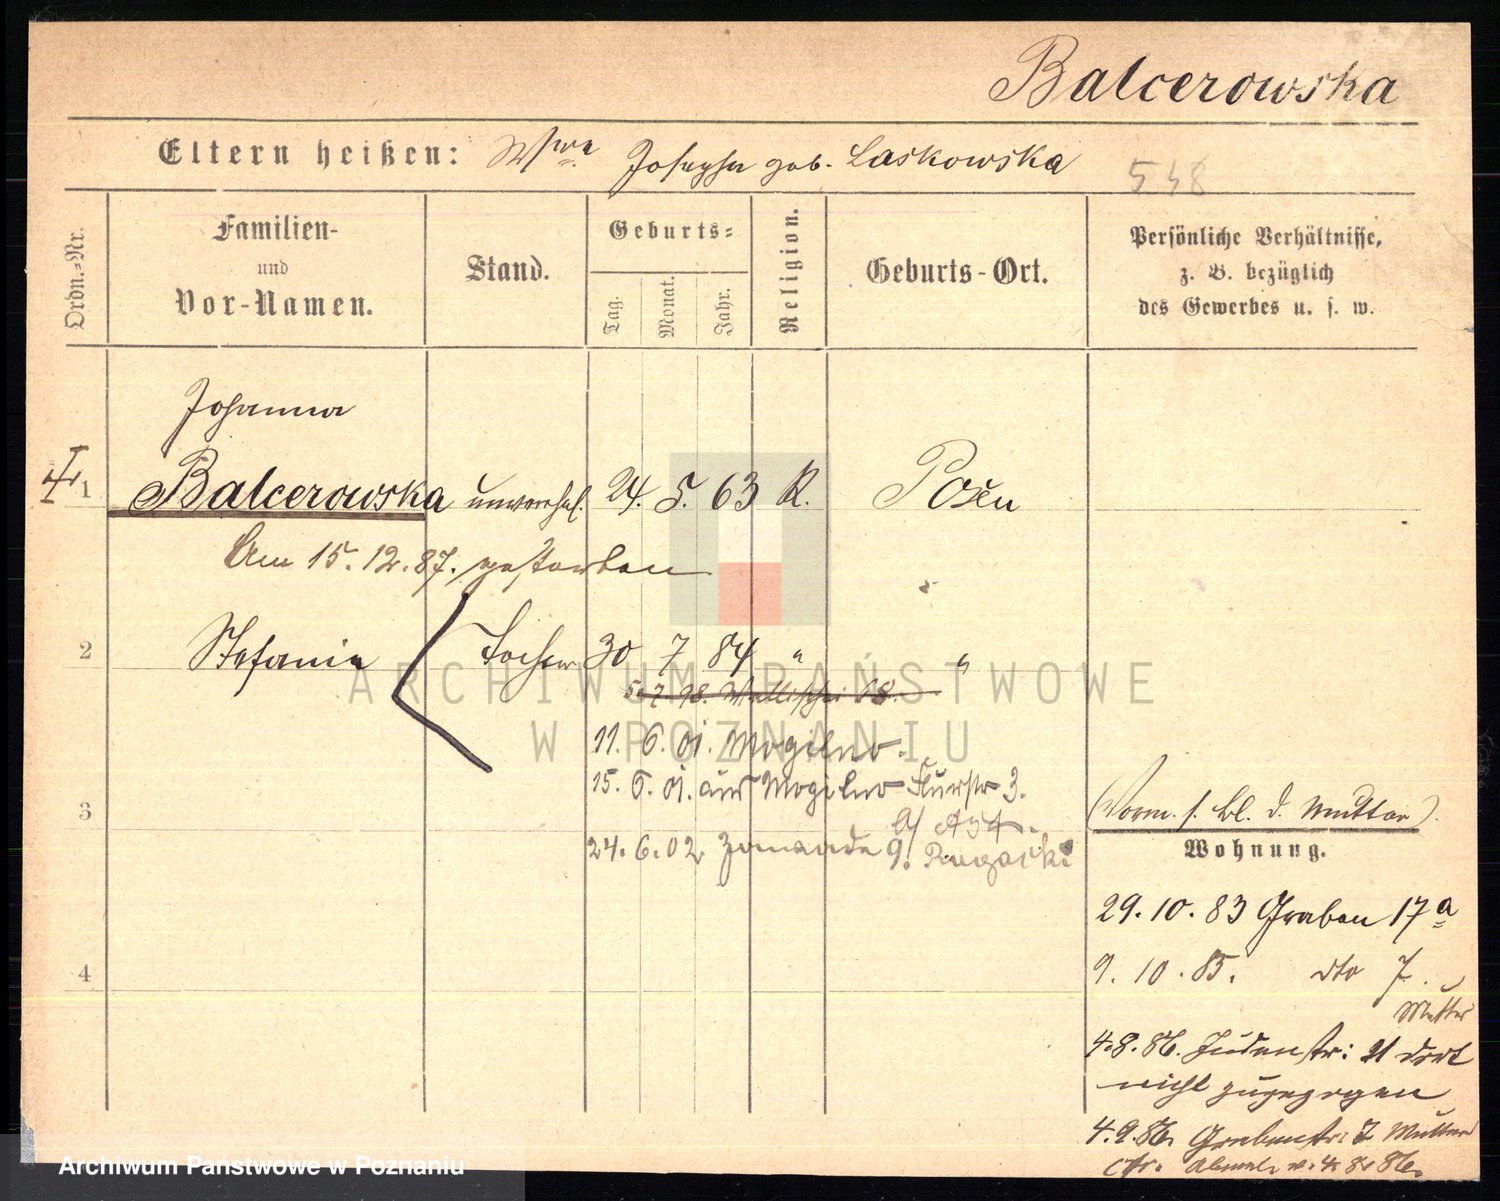 Balcerowska
Eltern heißen: Wwe Josepha geb. Laskowska
548
Ordn.-Nr.
Familien-
und
Vor-Namen.
Stand.
Geburts-
Tag.
Monat.
Jahr.
Religion.
Geburts-Ort.
Persönliche Verhältnisse,
z. B. bezüglich
des Gewerbes u. s. w.
Johanna
1 Balcerowska unverehel. 24. 5. 63 K. Posen
Am 15. 12. 87. gestorben
2 Stefania Tochter 30 7 84 " "
ARCHIWUM PAŃSTWOWE
W POZNANIU
5. 7. 98. Wallischei 68.
11. 6. 01. Mogilno.
15. 6. 01. aus Mogilno 3.
3
(Vorm. s. Bl. d. Mutter).
24. 6. 02
Wohnung.
29. 10. 83 Graben 17a
4
9. 10. 85. dto 7.
Mutter
4.8.86. Judenstr: 21 dort
nicht zugezogen
4.9.86. Grabenstr: 7 Mutter
v. 4. 8. 86.
Archiwum Państwowe w Poznaniu